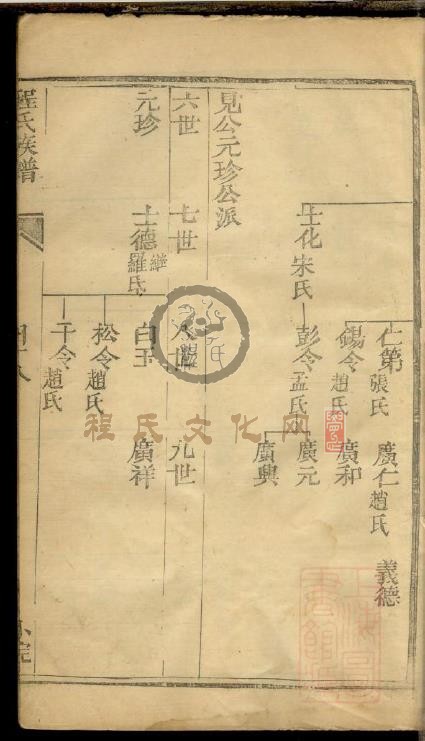 仁第 張氏 廣仁 趙氏 義德
錫令 趙氏 廣和
士化 宋氏 彭令 孟氏 廣元
廣興
見公元珍公派
六世 七世 八世 九世
元珍 士德 繼羅氏 白玉 廣祥
松令 趙氏
干令 趙氏
程氏族譜
程氏文化网